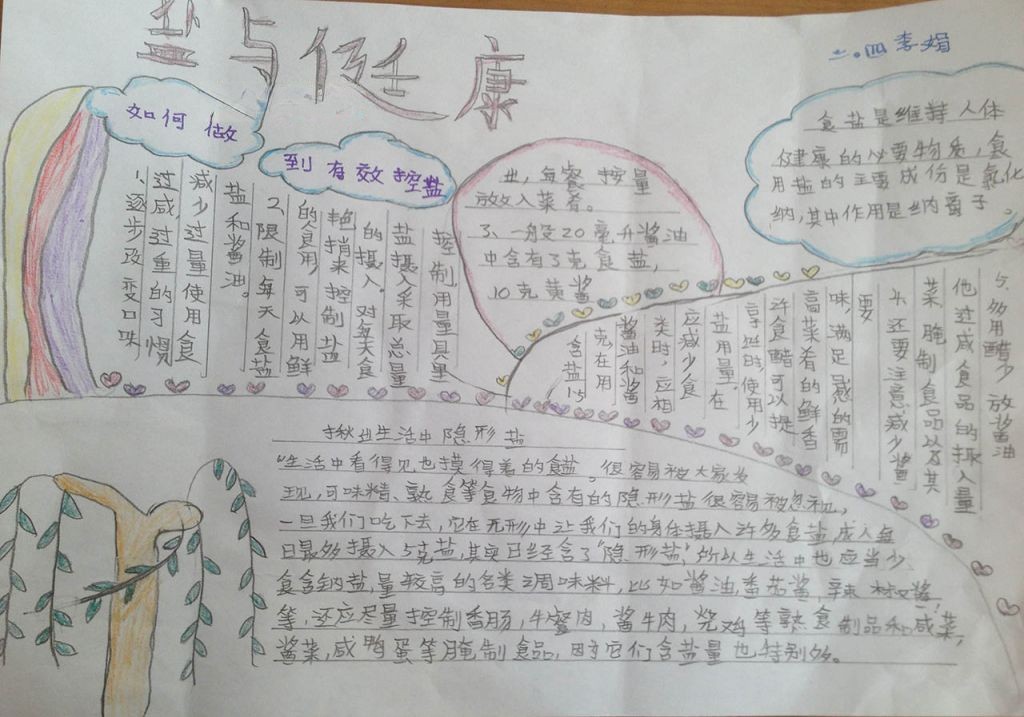 盐与健康
二.四 李娟
如何做
到有效控盐
食盐是维持人体
健康的必要物质,食
用盐的主要成份是氯化
纳,其中作用是纳离子。
1、逐步改变口味
过咸,过重的习惯
减少过量使用食
盐和酱油。
2、限制每天食盐
的食用,可以用鲜
艳捎来控制盐
的摄入。对每天食
盐摄入采取总量
控制,用量具量
出,每餐按量
放入菜肴。
3、一般20毫升酱油
中含有3克食盐,
10克黄酱
含盐1.5
克在用
酱油和酱
类时,应相
应减少食
盐用量。在
烹饪时,使用少
许食醋可以提
高菜肴的鲜香
味,满足感的需
要
4、还要注意减少酱
菜、腌制食品以及其
他过咸食品的摄入量
5、多用醋少放酱油
揪出生活中隐形盐
"生活中看得见也摸得着的食盐。很容易被大家发
现,可味精、熟食等食物中含有的隐形盐很容易被忽视,
一旦我们吃下去,它在无形中让我们的身体摄入许多食盐,成人每
日最多摄入5克盐,其实已经含了"隐形盐",所以生活中也应当少
食含钠盐,量较高的各类调味料,比如酱油,番茄酱,辣椒酱
等,还应尽量控制香肠,牛餐肉,酱牛肉,烧鸡等熟食制品和咸菜,
酱菜,咸鸭蛋等腌制食品,因为它们含盐量也特别多。